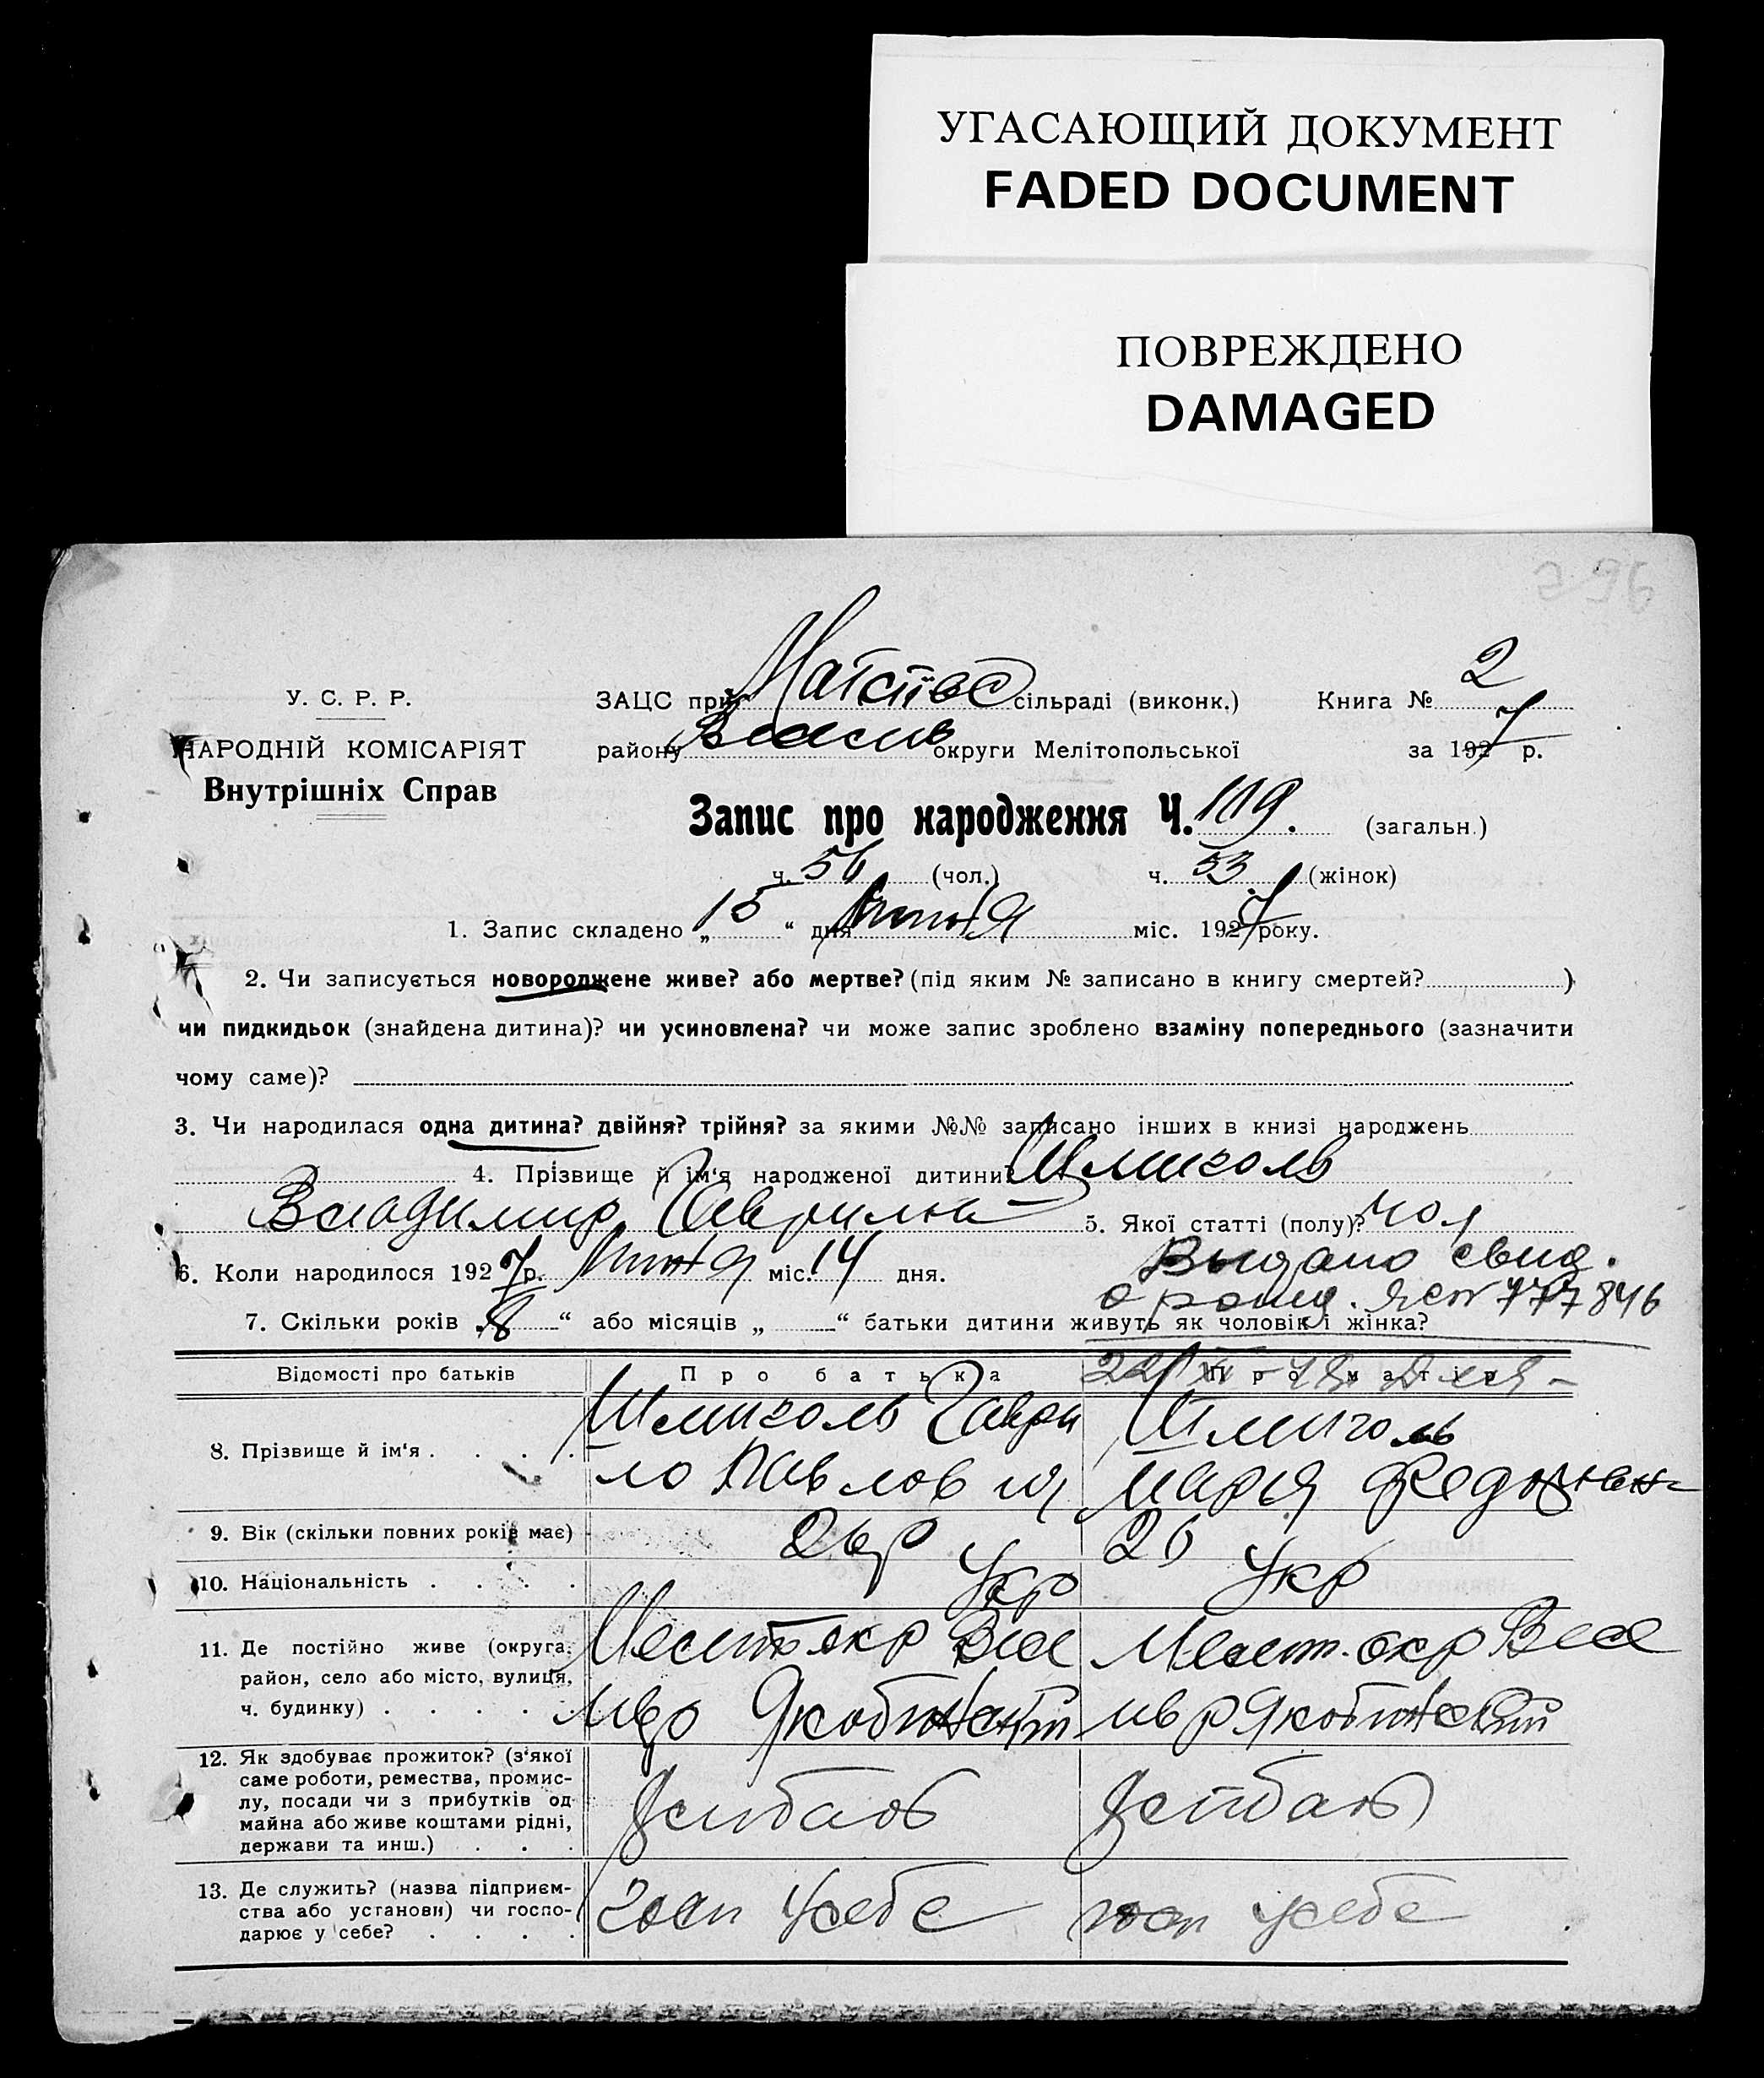 УГАСАЮЩИЙ ДОКУМЕНТ
FADED DOCUMENT
ПОВРЕЖДЕНО
DAMAGED
396
У. С. Р. Р.
НАРОДНІЙ КОМІСАРІЯТ
Внутрішніх Справ
ЗАЦС при сільраді (виконк.)
Книга № 2
району округи Мелітопольської
за 1927 р.
Запис про народження Ч. 109. (загальн.)
ч. 56 (чол.) ч. 53. (жінок)
1. Запис складено „ 15 “ дня міс. 1927 року.
2. Чи записується новороджене живе? або мертве? (під яким № записано в книгу смертей? )
чи пидкидьок (знайдена дитина)? чи усиновлена? чи може запис зроблено взаміну попереднього (зазначити
чому саме)?
3. Чи народилася одна дитина? двійня? трійня? за якими №№ записано інших в книзі народжень
4. Прізвище й ім‘я народженої дитини? Шмиголь
Владимир 5. Якої статті (полу)? чол
6. Коли народилося 1927 р. міс. 14 дня.
Выдано свид.
о рожд. 777846
7. Скільки років „ 8 “ або місяців „ “ батьки дитини живуть як чоловік і жінка?
Відомості про батьків
Про батька
Про матір
8. Прізвище й ім‘я . . . .
Шмиголь Гаври
ло Павлов
Шмиголь
Мария
9. Вік (скільки повних років має)
26 р
26
10. Національність . . . .
Укр
Укр
11. Де постійно живе (округа,
район, село або місто, вулиця,
ч. будинку) . . . . .
Мелит окр Вас
Якобинский
Мелит. окр Вас
ив р Якобинский
12. Як здобуває прожиток? (з‘якої
саме роботи, ремества, промис-
лу, посади чи з прибутків од
майна або живе коштами рідні,
держави та инш.) . . .
13. Де служить? (назва підприєм-
ства або установи) чи госпо-
дарює у себе? . . . .
госп у себе
госп у себе